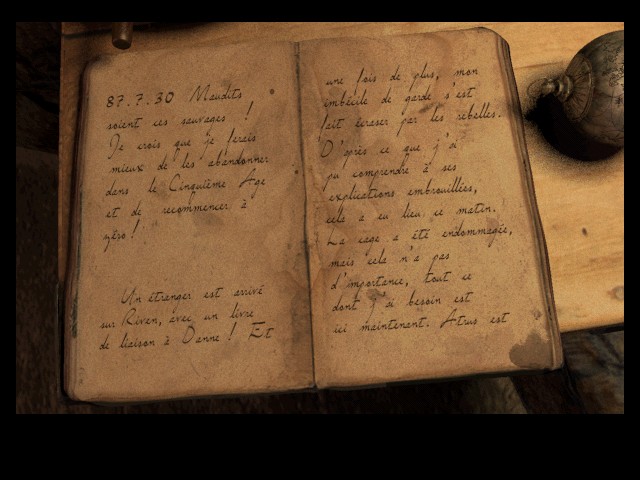 87.7.30 Maudits
soient ces sauvages !
Je crois que je ferais
mieux de les abandonner
dans le Cinquième Age
et de recommencer à
zéro !
Un étranger est arrivé
sur Riven, avec un livre
de liaison à D'anne ! Et
une fois de plus, mon
imbécile de garde s'est
fait écraser par les rebelles.
D'après ce que j'ai
pu comprendre à ses
explications embrouillées,
cela a eu lieu ce matin.
La cage a été endommagée,
mais cela n'a pas
d'importance, tout ce
dont j'ai besoin est
ici maintenant. Atrus est